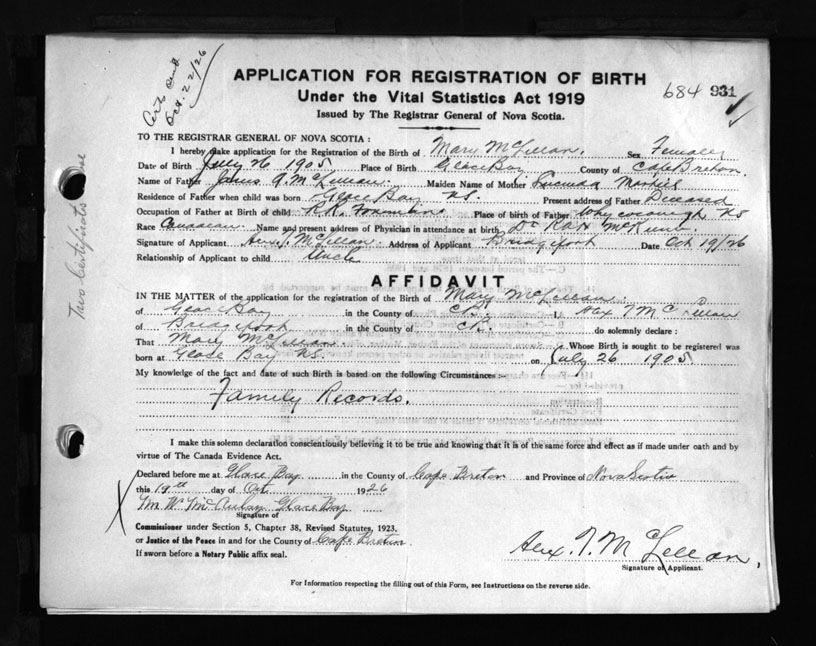 Certs sent
Oct. 22/26
APPLICATION FOR REGISTRATION OF BIRTH
Under the Vital Statistics Act 1919
Issued by The Registrar General of Nova Scotia.
684 931
TO THE REGISTRAR GENERAL OF NOVA SCOTIA :
I hereby make application for the Registration of the Birth of Mary McLellan. Sex Female
Date of Birth July 26 1905 Place of Birth Glace Bay County of Cape Breton.
Name of Father James A. McLellan. Maiden Name of Mother Lucinda
Residence of Father when child was born Glace Bay NS. Present address of Father Deceased
Occupation of Father at Birth of child R.R. Place of Birth of Father Whycocomagh NS
Race Canadian. Name and present address of Physician in attendance at birth, Dr
Signature of Applicant Alex. T. McLellan Address of Applicant Bridgeport Date Oct 19/26
Relationship of Applicant to child Uncle
AFFIDAVIT
IN THE MATTER of the application for the registration of the Birth of Mary McLellan.
of Glace Bay in the County of C.B. I, Alex T McLellan
of Bridgeport in the County of C.B. do solemnly declare :
That Mary McLellan. Whose Birth is sought to be registered was
born at Glace Bay NS. on July 26 1905
My knowledge of the fact and date of such Birth is based on the following Circumstances :-
Family Records.
I make this solemn declaration conscientiously believing it to be true and knowing that it is of the same force and effect as if made under oath and by
virtue of The Canada Evidence Act.
Declared before me at Glace Bay in the County of Cape Breton and Province of Nova Scotia
this 19th day of Oct 1926
Wm. W. McAulay Glace Bay
Signature of
Commissioner under Section 5, Chapter 38, Revised Statutes, 1923,
or Justice of the Peace in and for the County of Cape Breton
If sworn before a Notary Public affix seal.
Alex. T. McLellan.
Signature of Applicant.
For Information respecting the filling out of this Form, see Instructions on the reverse side.
Two Certificates